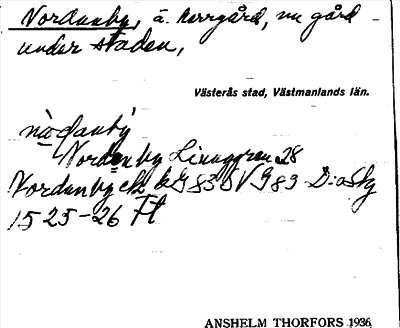 Nordanby, ä. herrgård, nu gård
under staden,
Västerås stad, Västmanlands län.
nòdanby
Nordanby Linnggren 28
Nordanby ek kG 83 SVG 83 D:o Skg
1525-26 Ft
ANSHELM THORFORS 1936